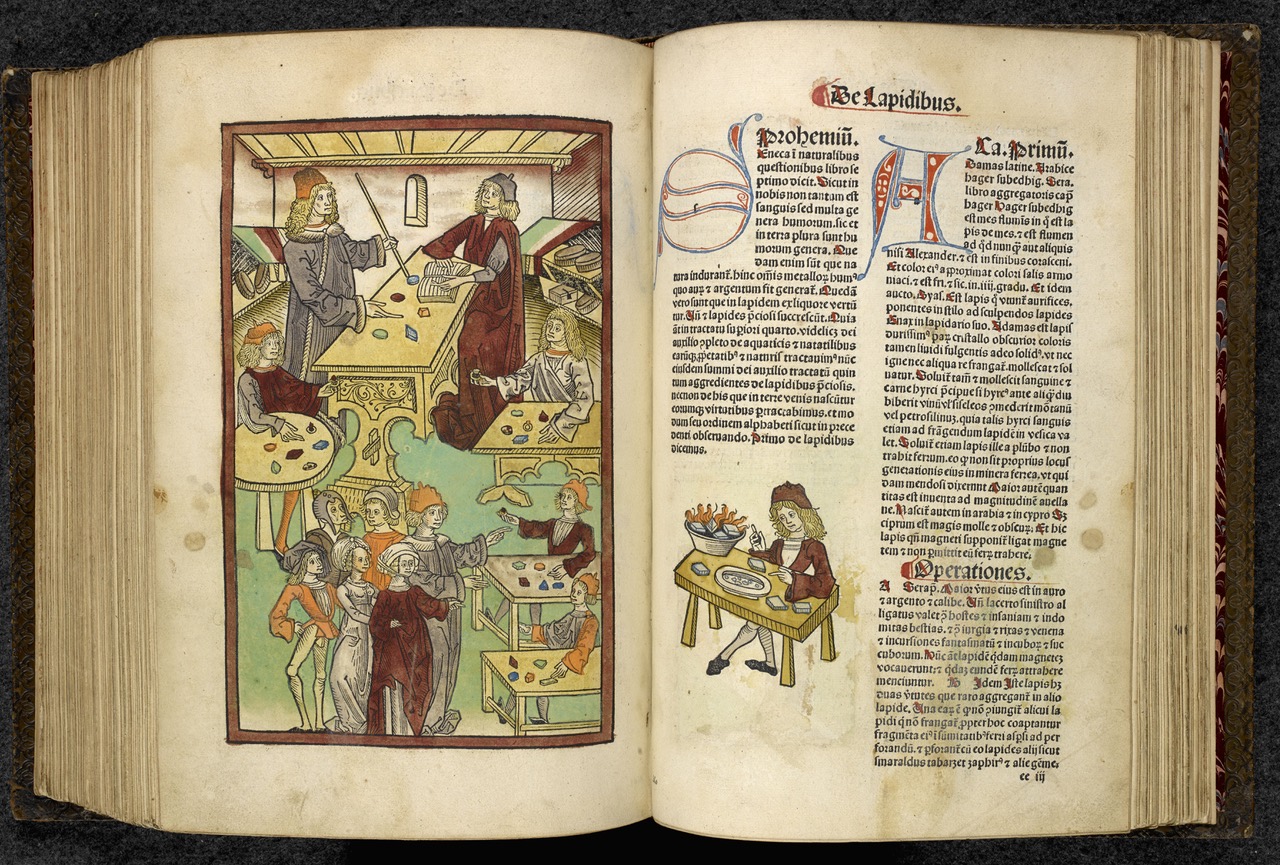 De Lapidibus.
Prohemiū.
SEneca ī naturalibus
questionibus libro se
ptimo dicit. Sicut in
nobis non tantum est
sanguis sed multa ge
nera humorum. sic et
in terra plura sunt hu
morum genera. Que
dam enim sūt que na
tura indurant̄. hinc om̄is metalloꝝ humꝰ
quo auꝝ ⁊ argentum fit
vero sunt que in lapidem ex liquore vertū
tur. Uñ ⁊ lapides p̄ciosi succrescūt. Quia
āt in tractatu supiori quarto. videlicꝫ dei
auxilio ꝯpleto de aquaticis ⁊ natatilibus
earūqꝫ ꝓpetatibꝰ ⁊ naturis tractauimꝰ nūc
eiusdem summi dei auxilio tractatū quin
tum aggredientes de lapidibus p̄ciosis.
necnon de his que in terre venis nascūtur
eorumqꝫ virtutibus ꝑtractabimus. et mo
dum seu ordinem alphabeti sicut in prece
denti obseruando. Primo de lapidibus
dicemus.
Ca. Primū.
ADamas latine. Arabice
hager subedhig. Sera.
libro aggregatoris cap̄
hager Hager subedhig
est mes flumīs in q̄ est la
pis de mes. ⁊ est flumen
ad qd̄ nunq̄ aut aliquis
nisi Alexander. ⁊ est in finibus corasceni.
Et color eiꝰ approximat colori salis armo
niaci. ⁊ est fri. ⁊ sic. in. iiij. gradu. Et idem
aucto. Dyas. Est lapis q̄ vtunt̄ aurifices.
ponentes in stilo ad sculpendos lapides
Enax in lapidario suo. Adamas est lapis
durissimꝰ paꝝ cristallo obscurior coloris
tamen liuidi fulgentis adeo solidꝰ. vt nec
igne nec aliqua re frangat̄. mollescat ⁊ sol
uatur. Soluit̄ tam̄ ⁊ mollescit sanguine ⁊
carne hyrci p̄cipue si hyrcꝰ ante aliqd̄iu
biberit vinū vel siseleos ꝯmederit mōtanū
vel petrosilinuꝫ. quia talis hyrci sanguis
etiam ad frāgendum lapidē in vesica va
let. Soluit̄ etiam lapis ille a plūbo ⁊ non
trahit ferrum. eo ꝙ non sit proprius locus
generationis eius in minera ferrea. vt qui
dam mendosi dixerunt Maior autē quan
titas est inuenta ad magnitudinē auella
ne. Nascit̄ autem in arabia ⁊ in cypro Sꝫ
ciprum est magis molle ⁊ obscuꝝ. Et hic
lapis qn̄ magneti supponit̄ ligat magne
tem ⁊ non ꝑmittit eū feꝝ trahere.
Operationes.
A Serap. Maior v̄tus eius est in auro
⁊ argento ⁊ calibe. Uñ lacerto sinistro al
ligatus valet ꝯ̄ hostes ⁊ insaniam ⁊ indo
mitas bestias. ⁊ ꝯ̄ iurgia ⁊ rixas ⁊ venena
⁊ incursiones fantasmatū ⁊ incuboꝝ ⁊ suc
cuborum. Hūc āt lapidē qdam magnetem
vocauerunt: ⁊ qdaꝫ eundē feꝝ attrahere
menciuntur. B Idem Iste lapis hꝫ
duas v̄tutes que raro aggregant̄ in alio
lapide. Una eaꝝ ē qꝛ nō ꝯiungit̄ alicui la
pidi qꝛ nō frangat̄. ꝓpter hoc coaptantur
fragmēta eiꝰ ī sūmitatibꝰ ferri aspꝭ ad per
forandū. ⁊ ꝑforant̄ cū eo lapides alij sicut
smaraldus tabarzet zaphirꝰ ⁊ alie gēme.
ee iij